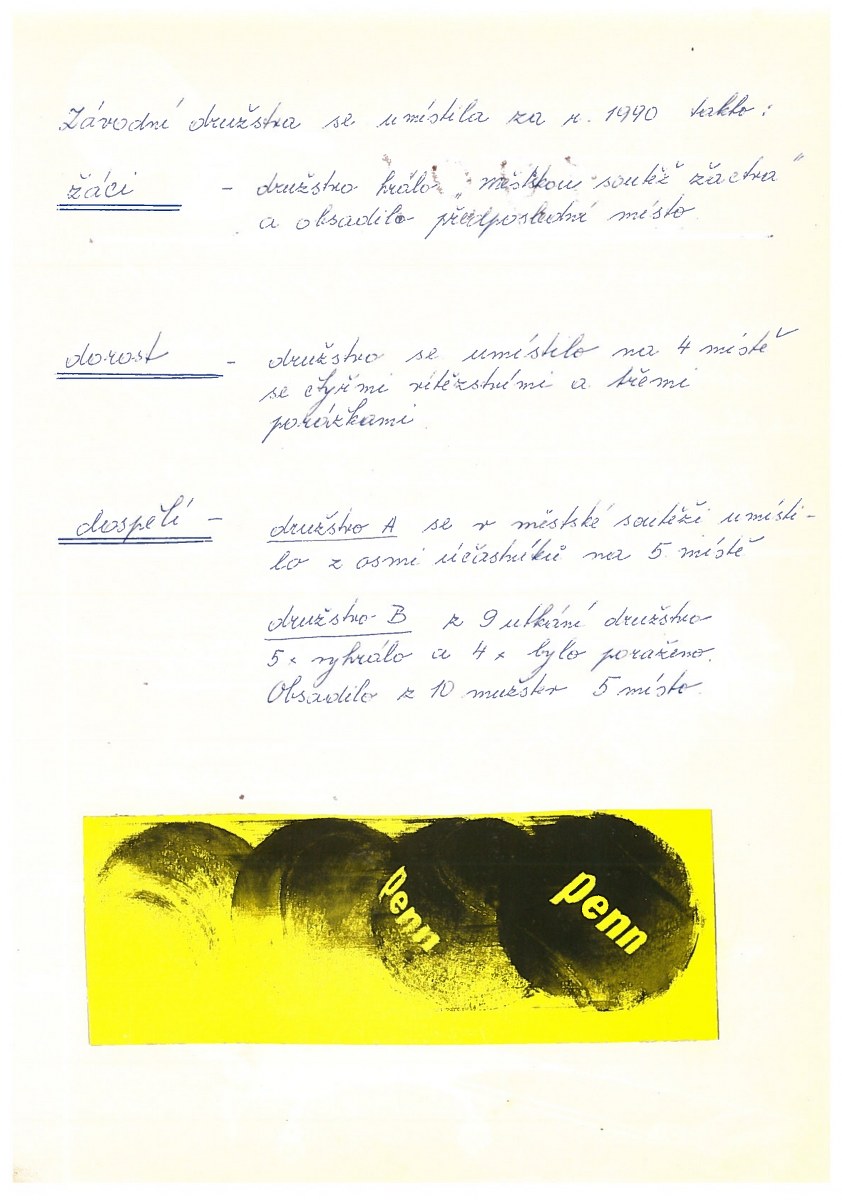 Závodní družstva se umístila za r. 1990 takto:
žáci - družstvo hrálo „Městskou soutěž žactva"
a obsadilo předposlední místo.
dorost - družstvo se umístilo na 4 místě
se čtyřmi vítězstvími a třemi
porážkami.
dospělí - družstvo A se v městské soutěži umísti-
lo z osmi účastníků na 5 místě
družstvo B z 9 utkání družstvo
5 x vyhrálo a 4 x bylo poraženo.
Obsadilo z 10 mužstev 5 místo.
penn
penn